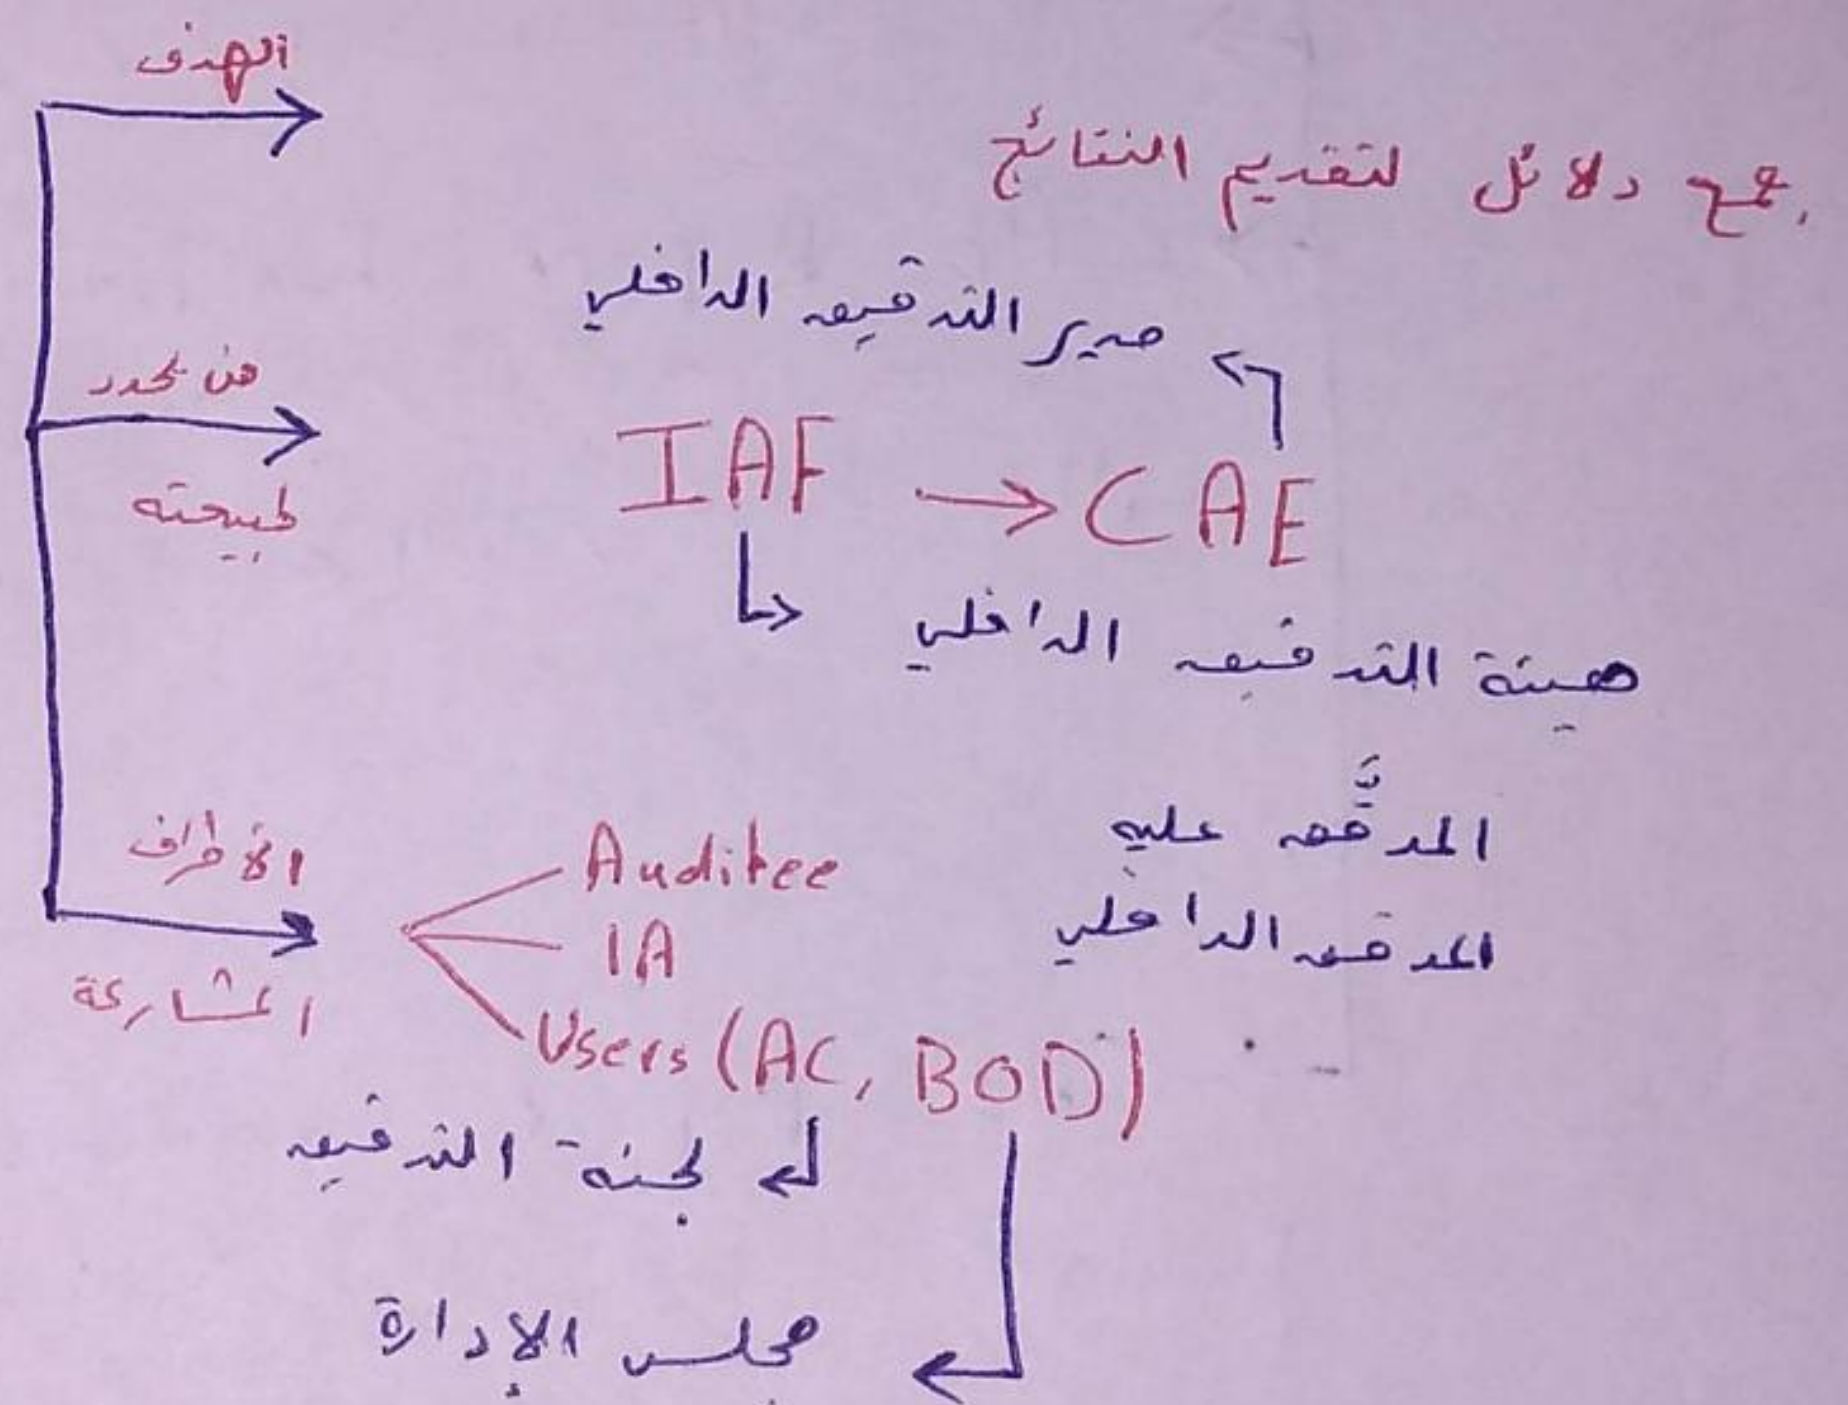 الهدف
جمع دلائل لتقديم النتائج
مدير التدقيق الداخلي
من يحدد
طبيعته
IAF → CAE
هيئة التدقيق الداخلي
الأطراف
المشاركة
Auditee المدقَّق عليه
IA المدقق الداخلي
Users (AC, BOD)
لجنة التدقيق
مجلس الإدارة